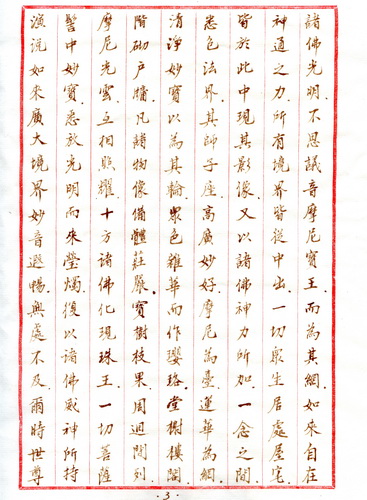 諸佛光明不思議音摩尼寶王而為其網如來自在
神通之力所有境界皆從中出一切眾生居處屋宅
皆於此中現其影像又以諸佛神力所加一念之間
悉包法界其師子座高廣妙好摩尼為臺蓮華為網
清淨妙寶以為其輪眾色雜華而作瓔珞堂榭樓閣
階砌戶牖凡諸物像備體莊嚴寶樹枝果周迴間列
摩尼光雲互相照耀十方諸佛化現珠王一切菩薩
髻中妙寶悉放光明而來瑩燭復以諸佛威神所持
演說如來廣大境界妙音遐暢無處不及爾時世尊
·3·